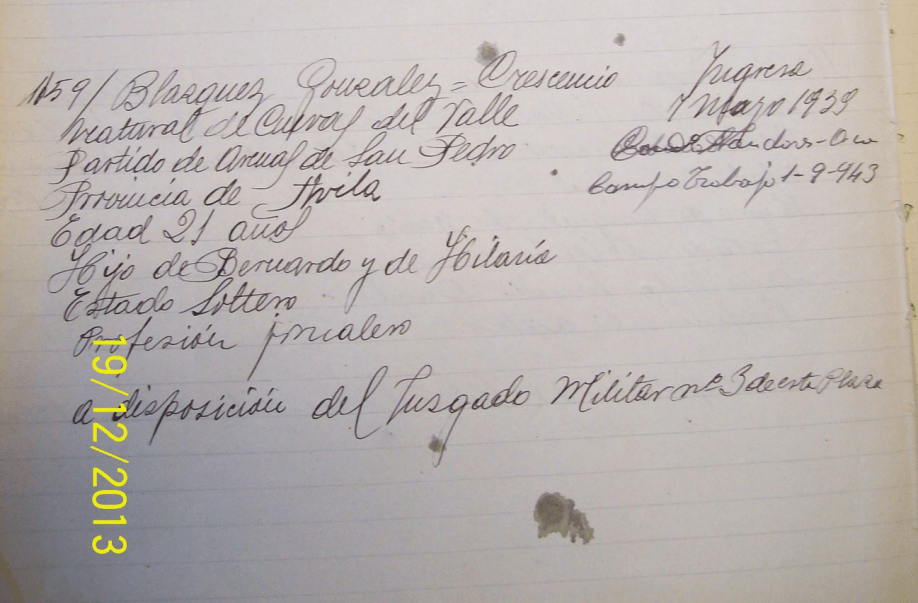 1159/ Blazquez Gonzalez = Crescencio
Natural de Cuevas del Valle
Partido de Arenas de San Pedro
Provincia de Avila
Edad 21 años
Hijo de Bernardo y de Hilaria
Estado Soltero
Profesión jornalero
a disposición del Juzgado Militar nº 3 de esta Plaza
Ingresa
7 Mayo 1939
Campo Trabajo 1-9-943
19/12/2013